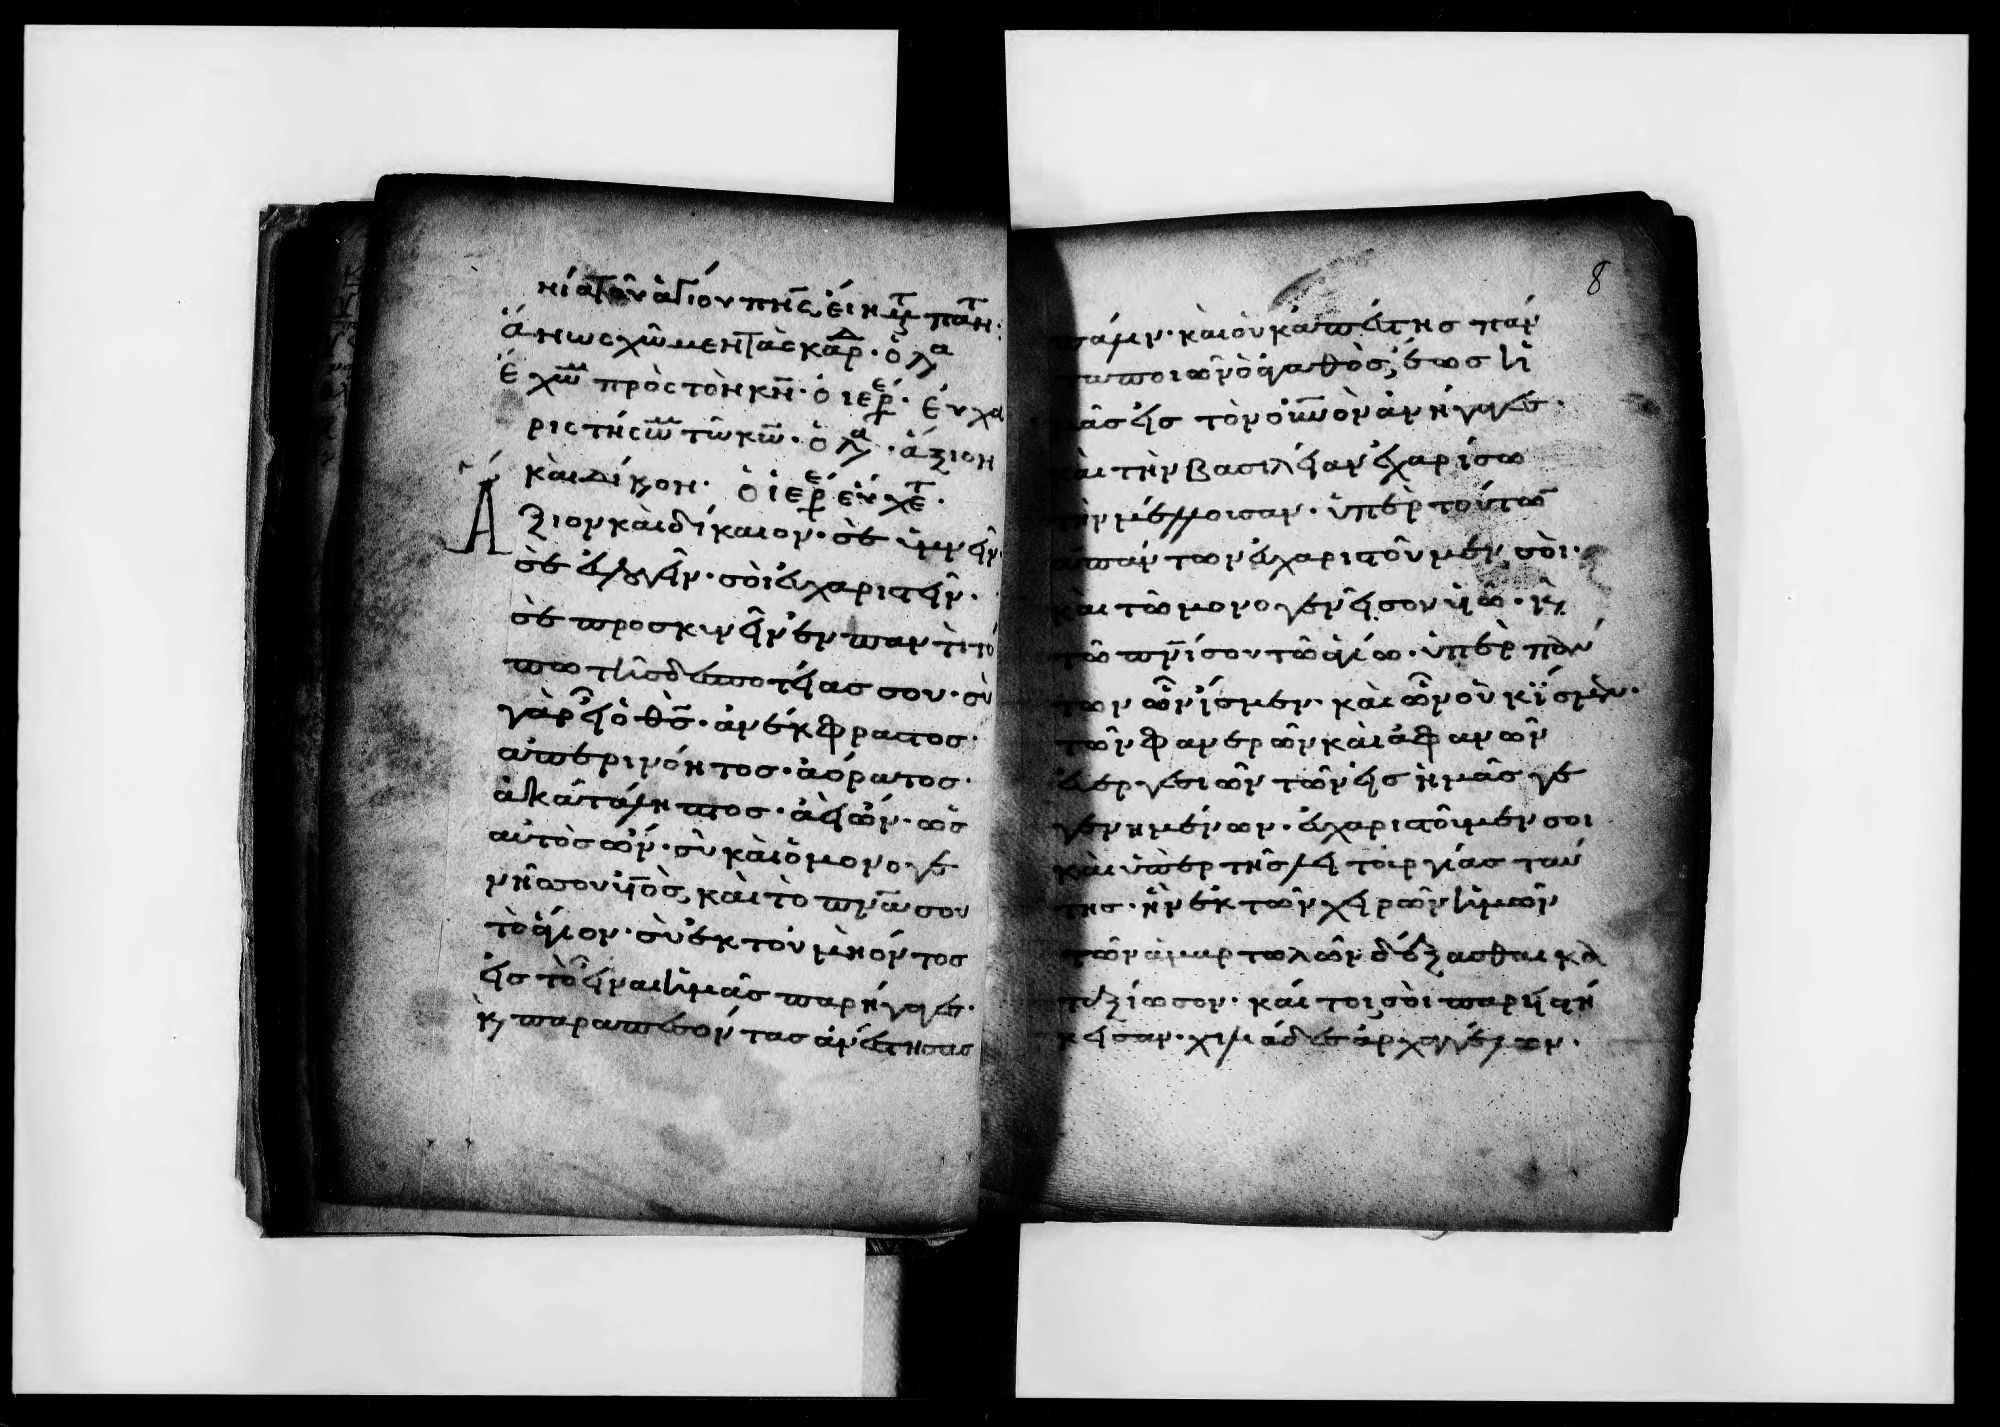 νία τοῦ ἁγίου πν̅ς εἴη μ̅τ πάντ̅·
Ἄνω σχῶμεν τὰς καρδ· ὁ λα
Ἔχωμ̅ πρὸς τὸν κν̅· ὁ ιερε· Εὐχα
ριστήσωμ̅ τῶ κω̅· ὁ λα· ἄξιον
καὶ δίκαιον· ὁ ἱερε εὔχετ·
Ἄξιον καὶ δίκαιον· σὲ ὑμνεῖν
σὲ εὐλογεῖν· σοὶ εὐχαριστεῖν·
σὲ προσκυνεῖν ἐν παντὶ τό
πω τῆς δεσποτείας σου· σὺ
γὰρ εἶ ὁ θς̅· ἀνέκφραστος·
ἀπερινόητος· ἀόρατος·
ἀκατάληπτος· ἀεὶ ὤν· ὡς
αὐτὸς ὤν· σὺ καὶ ὁ μονογε
νής σου υἱὸς, καὶ τὸ πνα̅ σου
τὸ ἅγιον· σὺ ἐκ τοῦ μὴ ὄντος
εἰς τὸ εἶναι ἡμᾶς παρήγαγες·
κ παραπεσόντας ἀνέστησας
8
πάλιν· καὶ οὐκ ἀπέστης πάν
τα ποιῶν ὁ ἀγαθὸς, ἕως ἡ
μᾶς εἰς τὸν οὐν̅ον ἀνήγαγες·
καὶ τὴν βασιλείαν ἐχαρίσω
τὴν μέλλουσαν· ὑπὲρ τούτω̅
ἁπάντων εὐχαριστοῦμέν σοι·
καὶ τῶ μονογενεῖ σου υἱῶ· κ
τῶ πν̅ί σου τῶ ἁγίω· ὑπὲρ πάν
των ὧν ἴσμεν· καὶ ὧν οὐκ ἴσμεν·
τῶν φανερῶν καὶ ἀφανῶν
εὐεργεσιῶν τῶν εἰς ἡμᾶς γε
γενημένων· εὐχαριστοῦμέν σοι
καὶ ὑπὲρ τῆς λειτουργίας ταύ
της· ἣν ἐκ τῶν χειρῶν ἡμῶν
τῶν ἁμαρτολῶν δέξασθαι κα
ταξίωσον· καί τοι σοὶ παρηστή
κεισαν· χιλιάδες ἀρχαγγέλων·